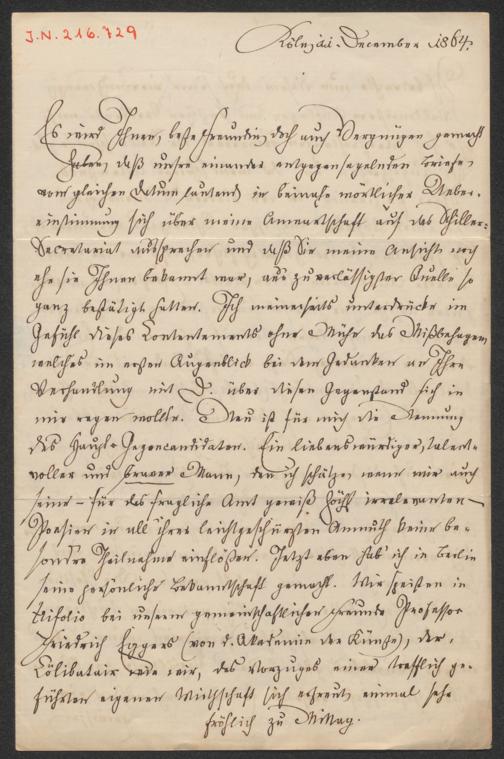 J.N. 216.729
Köln, December 1864.
Es wird Ihnen, beste Freundin, doch auch Vergnügen gemacht
haben, daß unsre einander entgegensegelnden Briefe,
vom gleichen Datum lautend, in beinahe wörtlicher Ueber-
einstimmung sich über meine Anwartschaft auf das Schiller-
Secretariat aussprechen und daß Sie meine Ansicht, noch
ehe sie Ihnen bekannt war, aus zuverlässigster Quelle so
ganz bestätigt hatten. Ich meinerseits unterdrücke im
Gefühl dieses Contentements ohne Mühe das Mißbehagen,
welches im ersten Augenblick bei dem Gedanken an Ihre
Verhandlung mit D. über diesen Gegenstand sich in
mir regen wollte. Neu ist für mich die Nennung
des Haupt-Gegencandidaten. Ein liebenswürdiger, talent-
voller und braver Mann, den ich schätze, wenn mir auch
seine – für das fragliche Amt gewiß höchst irrelevanten –
Poesien in all ihrer leichtgeschürzten Anmuth keine be-
sondre Theilnahme einflößen. Jetzt eben hab' ich in Berlin
seine persönliche Bekanntschaft gemacht. Wir speisten in
trifolio bei unserm gemeinschaftlichen Freunde Professor
Friedrich Eggers (von d. Akademie der Künste), der,
Cölibatair wie wir, des Vorzuges einer trefflich ge-
führten eigenen Wirthschaft sich erfreut, einmal sehr
fröhlich zu Mittag.